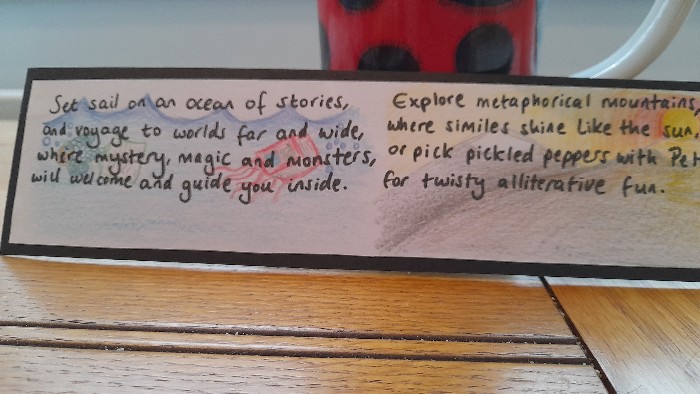 Set sail on an ocean of stories,
and voyage to worlds far and wide,
where mystery, magic and monsters,
will welcome and guide you inside.
Explore metaphorical mountains,
where similes shine like the sun,
or pick pickled peppers with Pet
for twisty alliterative fun.